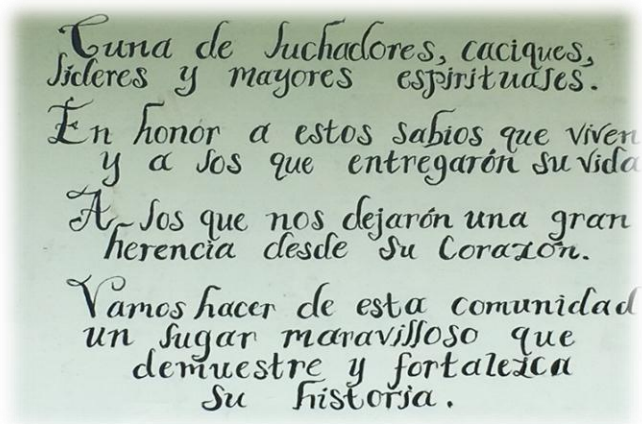 Cuna de luchadores, caciques,
líderes y mayores espirituales.
En honor a estos sabios que viven
y a los que entregarón su vida
A los que nos dejarón una gran
herencia desde su Corazón.
Vamos hacer de esta comunidad
un lugar maravilloso que
demuestre y fortalezca
su historia.